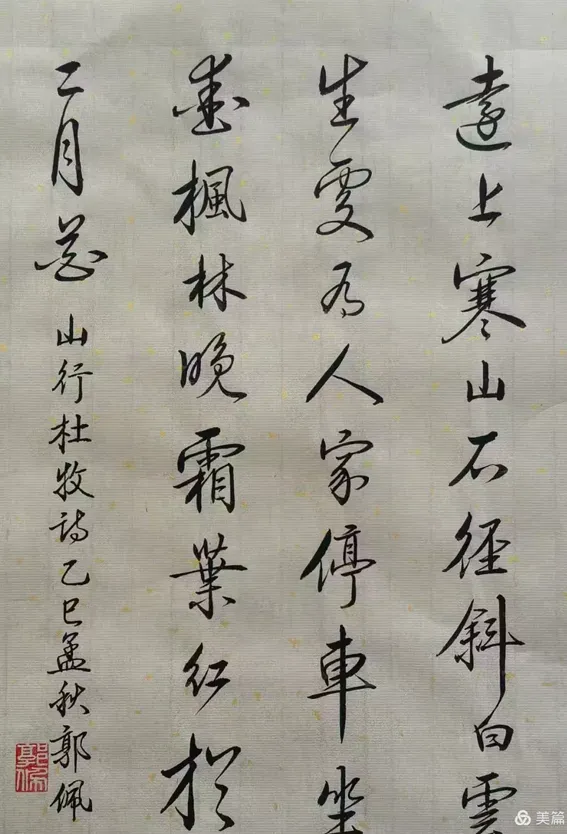 遠上寒山石徑斜白雲
生處為人家停車坐
愛楓林晚霜葉紅於
二月花
山行杜牧詩乙巳孟秋郭佩
郭佩
美篇